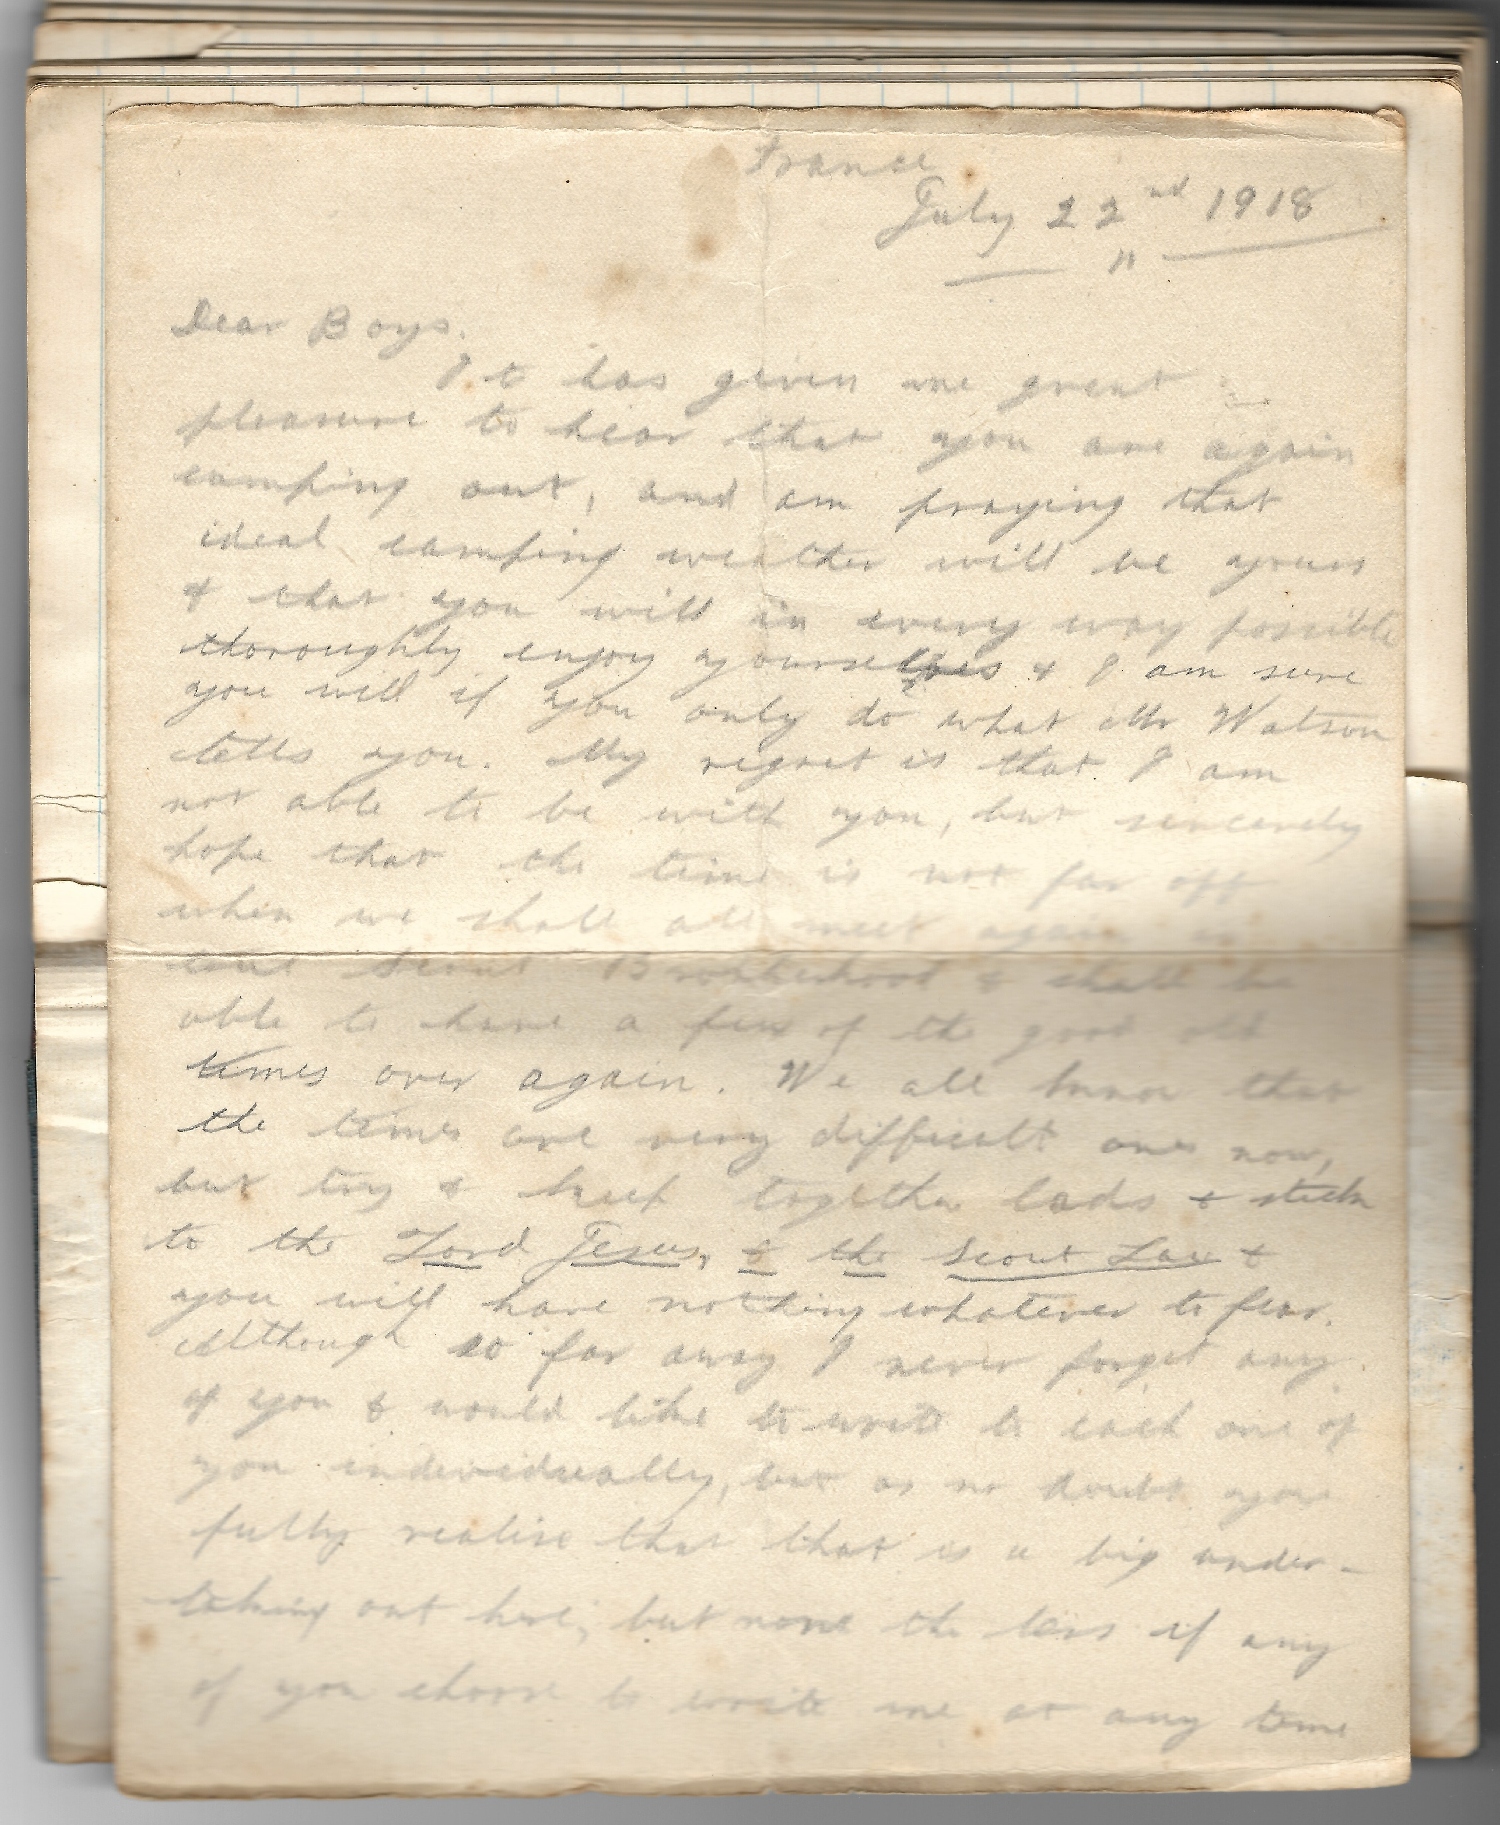 France
July 22nd 1918
"
Dear Boys.
It has given me great
pleasure to hear that you are again
camping out, and am praying that
ideal camping weather will be yours
& that you will in every way possible
thoroughly enjoy yourselves & I am sure
you will if you only do what Mr Watson
tells you. My regret is that I am
not able to be with you, but sincerely
hope that the time is not far off
when we shall all meet again
Scout Brotherhood & shall be
able to have a few of the good old
times over again. We all know that
the times are very difficult ones now,
but try & keep together lads & stick
to the Lord Jesus, & the Scout Law &
you will have nothing whatever to fear.
Although so far away I never forget any
of you & would like to write to each one of
you individually, but as no doubt you
fully realise that that is a big under-
taking out here, but none the less if any
of you choose to write me at any time